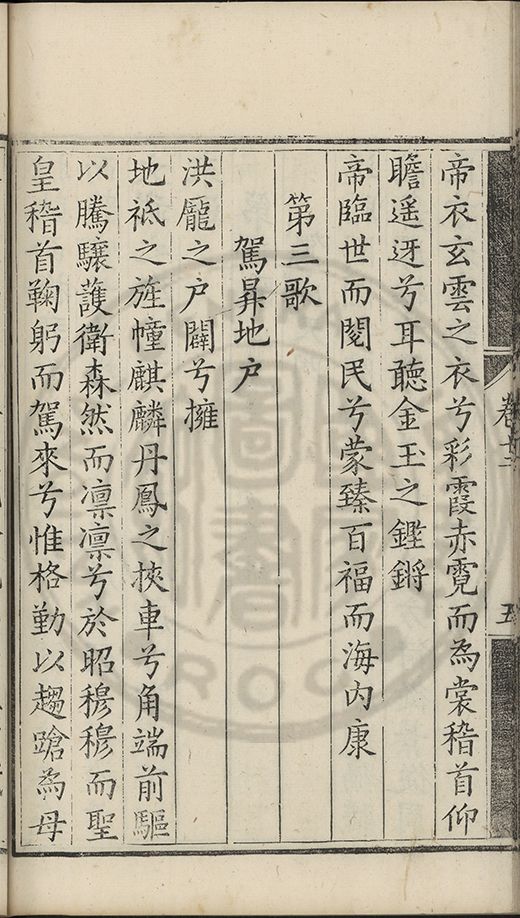 帝衣玄雲之衣兮彩霞赤霓而為裳稽首仰
瞻遥迓兮耳聽金玉之鏗鏘
帝臨世而閱民兮蒙臻百福而海内康
第三歌
駕昇地户
洪龐之户闢兮擁
地祇之旌幢麒麟丹鳳之挾車兮角端前驅
以騰驤護衛森然而凛凛兮於昭穆穆而聖
皇稽首鞠躬而駕來兮惟格勤以趨蹌為母
卷十二
五